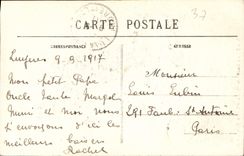 CARTE POSTALE
37
CORRESPONDANCE
9-9-1917
Mon petit Papa
Oncle Tante Margot
Mimi et moi nous
t'envoyons d'ici les
meilleurs baisers
Rachel
Monsieur
Louis Lubin
291 Faub. St Antoine
Paris